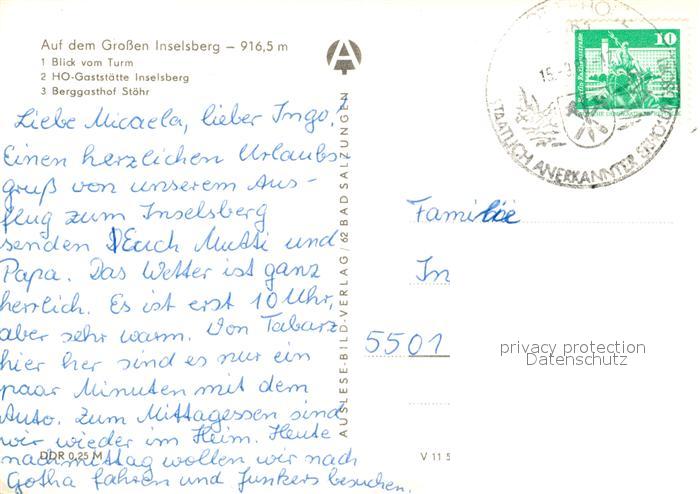 Auf dem Großen Inselsberg – 916,5 m
1 Blick vom Turm
2 HO-Gaststätte Inselsberg
3 Berggasthof Stöhr
Liebe Micaela, lieber Ingo!
Einen herzlichen Urlaubs-
gruß von unserem Aus-
flug zum Inselsberg
senden Euch Mutti und
Papa. Das Wetter ist ganz
herrlich. Es ist erst 10 Uhr,
aber sehr warm. Von Tabarz
hier her sind es nur ein
paar Minuten mit dem
Auto. Zum Mittagessen sind
wir wieder im Heim. Heute
nachmittag wollen wir nach
Gotha fahren und Junkers besuchen.
DDR 0,25 M
AUSLESE-BILD-VERLAG / 62 BAD SALZUNGEN
V 11 5
10
STAATLICH ANERKANNTER ERHOLUNGSORT
Familie
In
5501
privacy protection
Datenschutz